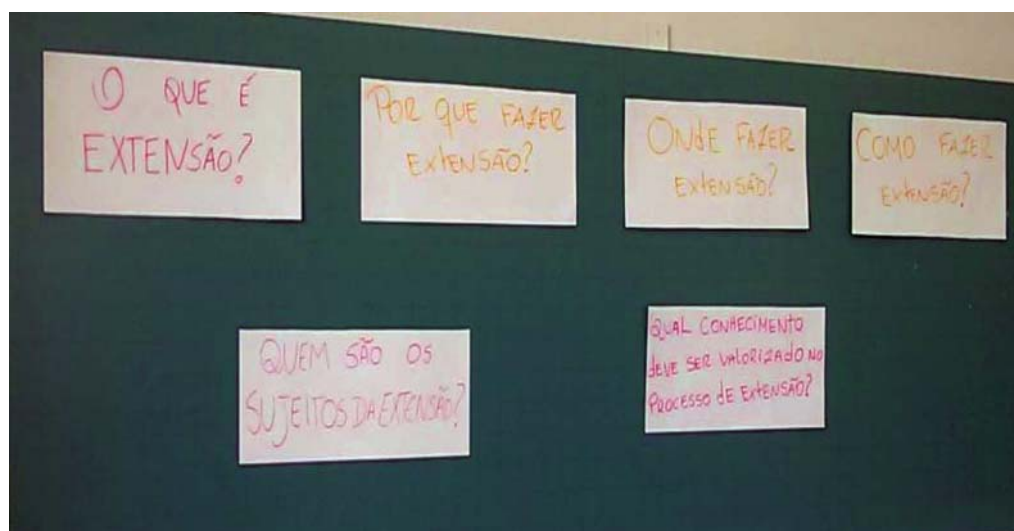 O QUE É
EXTENSÃO?
POR QUE FAZER
EXTENSÃO?
ONDE FAZER
EXTENSÃO?
COMO FAZER
EXTENSÃO?
QUEM SÃO OS
SUJEITOS DA EXTENSÃO?
QUAL CONHECIMENTO
dEVE SER VALORIZAdO NO
PROCESSO dE EXTENSÃO?